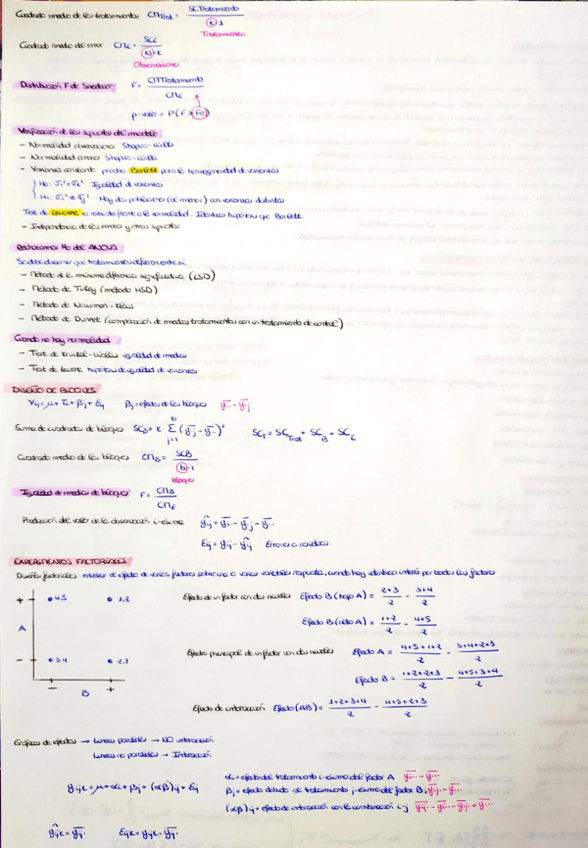 Cuadrado medio de los tratamientos CM_Trat = SCTratamiento / (k)-1
Tratamientos
Cuadrado medio del error CM_E = SC_E / (N)-k
Observaciones
Distribución F de Snedecor F = CMTratamiento / CM_E
p-valor = P(F > F_0)
Verificación de los supuestos del modelo
- Normalidad observaciones Shapiro-Wilk
- Normalidad errores Shapiro-Wilk
- Varianza constante prueba Bartlett para la homogeneidad de varianzas
H_0: σ_i² = σ_j² Igualdad de varianzas
H_1: σ_i² ≠ σ_j² Hay dos poblaciones (al menos) con varianzas distintas
Test de Levene es robusto frente a la normalidad. Idénticas hipótesis que Bartlett.
- Independencia de los errores y otros supuestos
Rechazamos H_0 del ANOVA
Se debe estudiar qué tratamientos difieren entre sí.
- Método de la mínima diferencia significativa (LSD)
- Método de Tukey (método HSD)
- Método de Newman-Keuls
- Método de Dunnet (comparación de medias tratamientos con un tratamiento de control)
Cuando no hay normalidad
- Test de Kruskal-Wallis igualdad de medias
- Test de Levene hipótesis de igualdad de varianzas
DISEÑO DE BLOQUES
Y_ij = μ + τ_i + β_j + ε_ij β_j = efecto de los bloques
Suma de cuadrados de bloques SC_B = k · Σ_{j=1}^{b} (ȳ.j - ȳ..)² SC_T = SC_Trat + SC_B + SC_E
Cuadrado medio de los bloques CM_B = SCB / (b)-1
bloques
Igualdad de medias de bloques F = CM_B / CM_E
Predicción del valor de la observación i-ésima
Errores o residuos
EXPERIMENTOS FACTORIALES
Diseños factoriales: estudiar el efecto de varios factores sobre una o varias variables respuesta, cuando hay idéntico interés por todos los factores
+ 4,5 1,2 Efecto de un factor con dos niveles Efecto B (bajo A) = 2+3 / 2 - 3+4 / 2
A Efecto B (alto A) = 1+2 / 2 - 4+5 / 2
Efecto principal de un factor con dos niveles Efecto A = 4+5+1+2 / 2 - 3+4+2+3 / 2
- 3,4 2,3
Efecto B = 1+2+2+3 / 2 - 4+5+3+4 / 2
- B +
Efecto de interacción Efecto (AB) = 1+2+3+4 / 2 - 4+5+2+3 / 2
Gráficos de efectos → Líneas paralelas → NO interacción
Líneas no paralelas → Interacción
α_i = efecto del tratamiento i-ésimo del factor A
y_ijk = μ + α_i + β_j + (αβ)_ij + ε_ij
β_j = efecto debido al tratamiento j-ésimo del factor B
(αβ)_ij = efecto de interacción con la combinación i-j